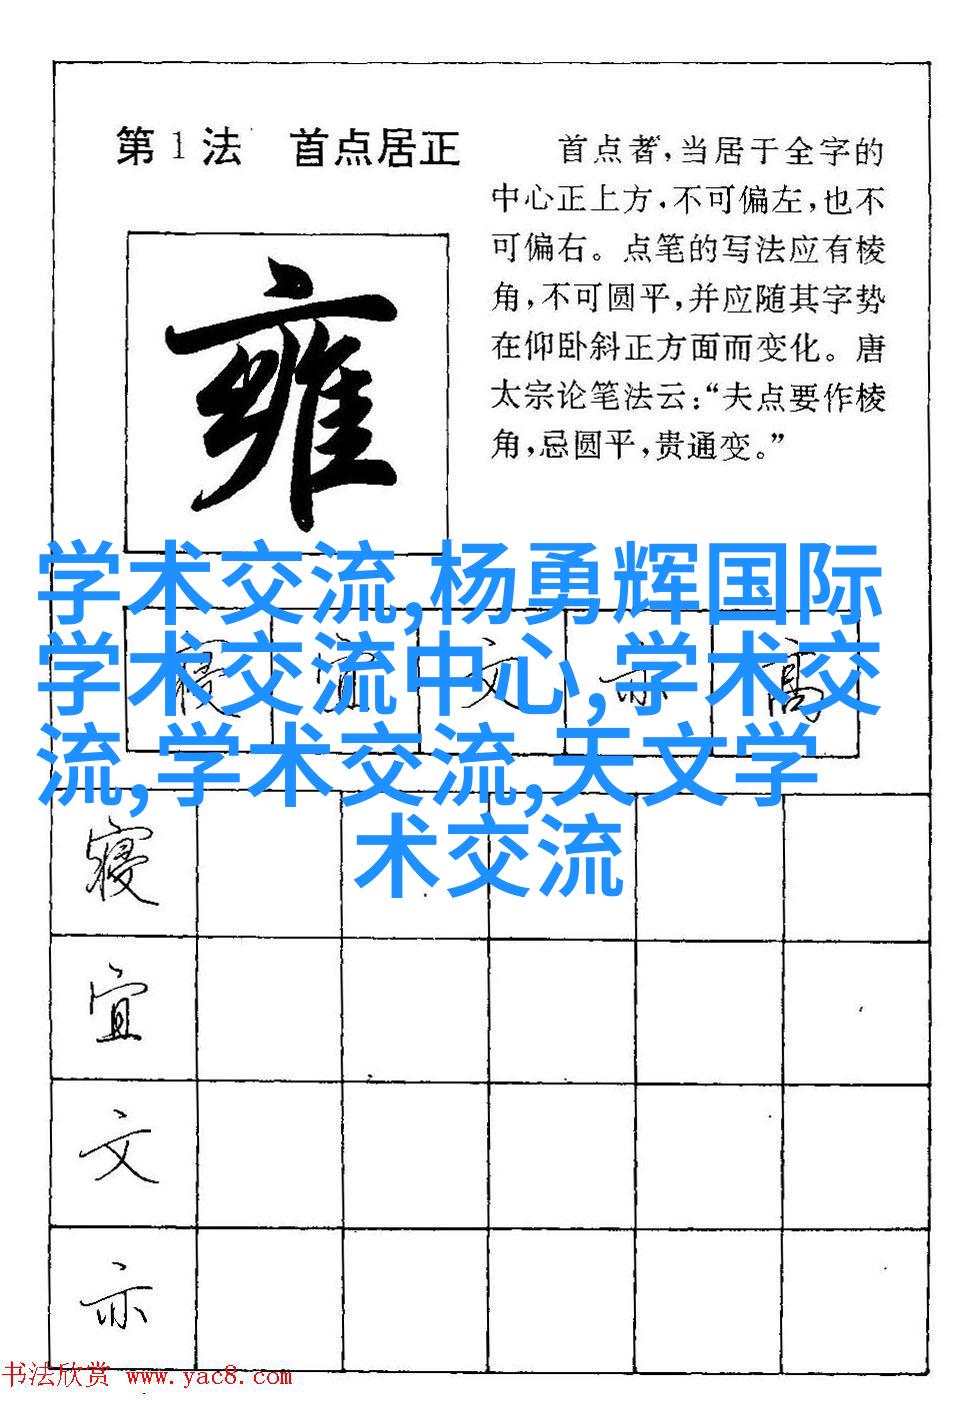 第1法 首点居正
首点著,当居于全字的
中心正上方,不可偏左,也不
可偏右。点笔的写法应有棱
角,不可圆平,并应随其字势
在仰卧斜正方面而变化。唐
太宗论笔法云:“夫点要作棱
角,忌圆平,贵通变。”
雍
学术交流,杨勇辉国际
学术交流中心,学术交
流,学术交流,天文学
术交流
寝 宜 文 亦 高
寝
宜
文
亦
书法欣赏 www.yac8.com